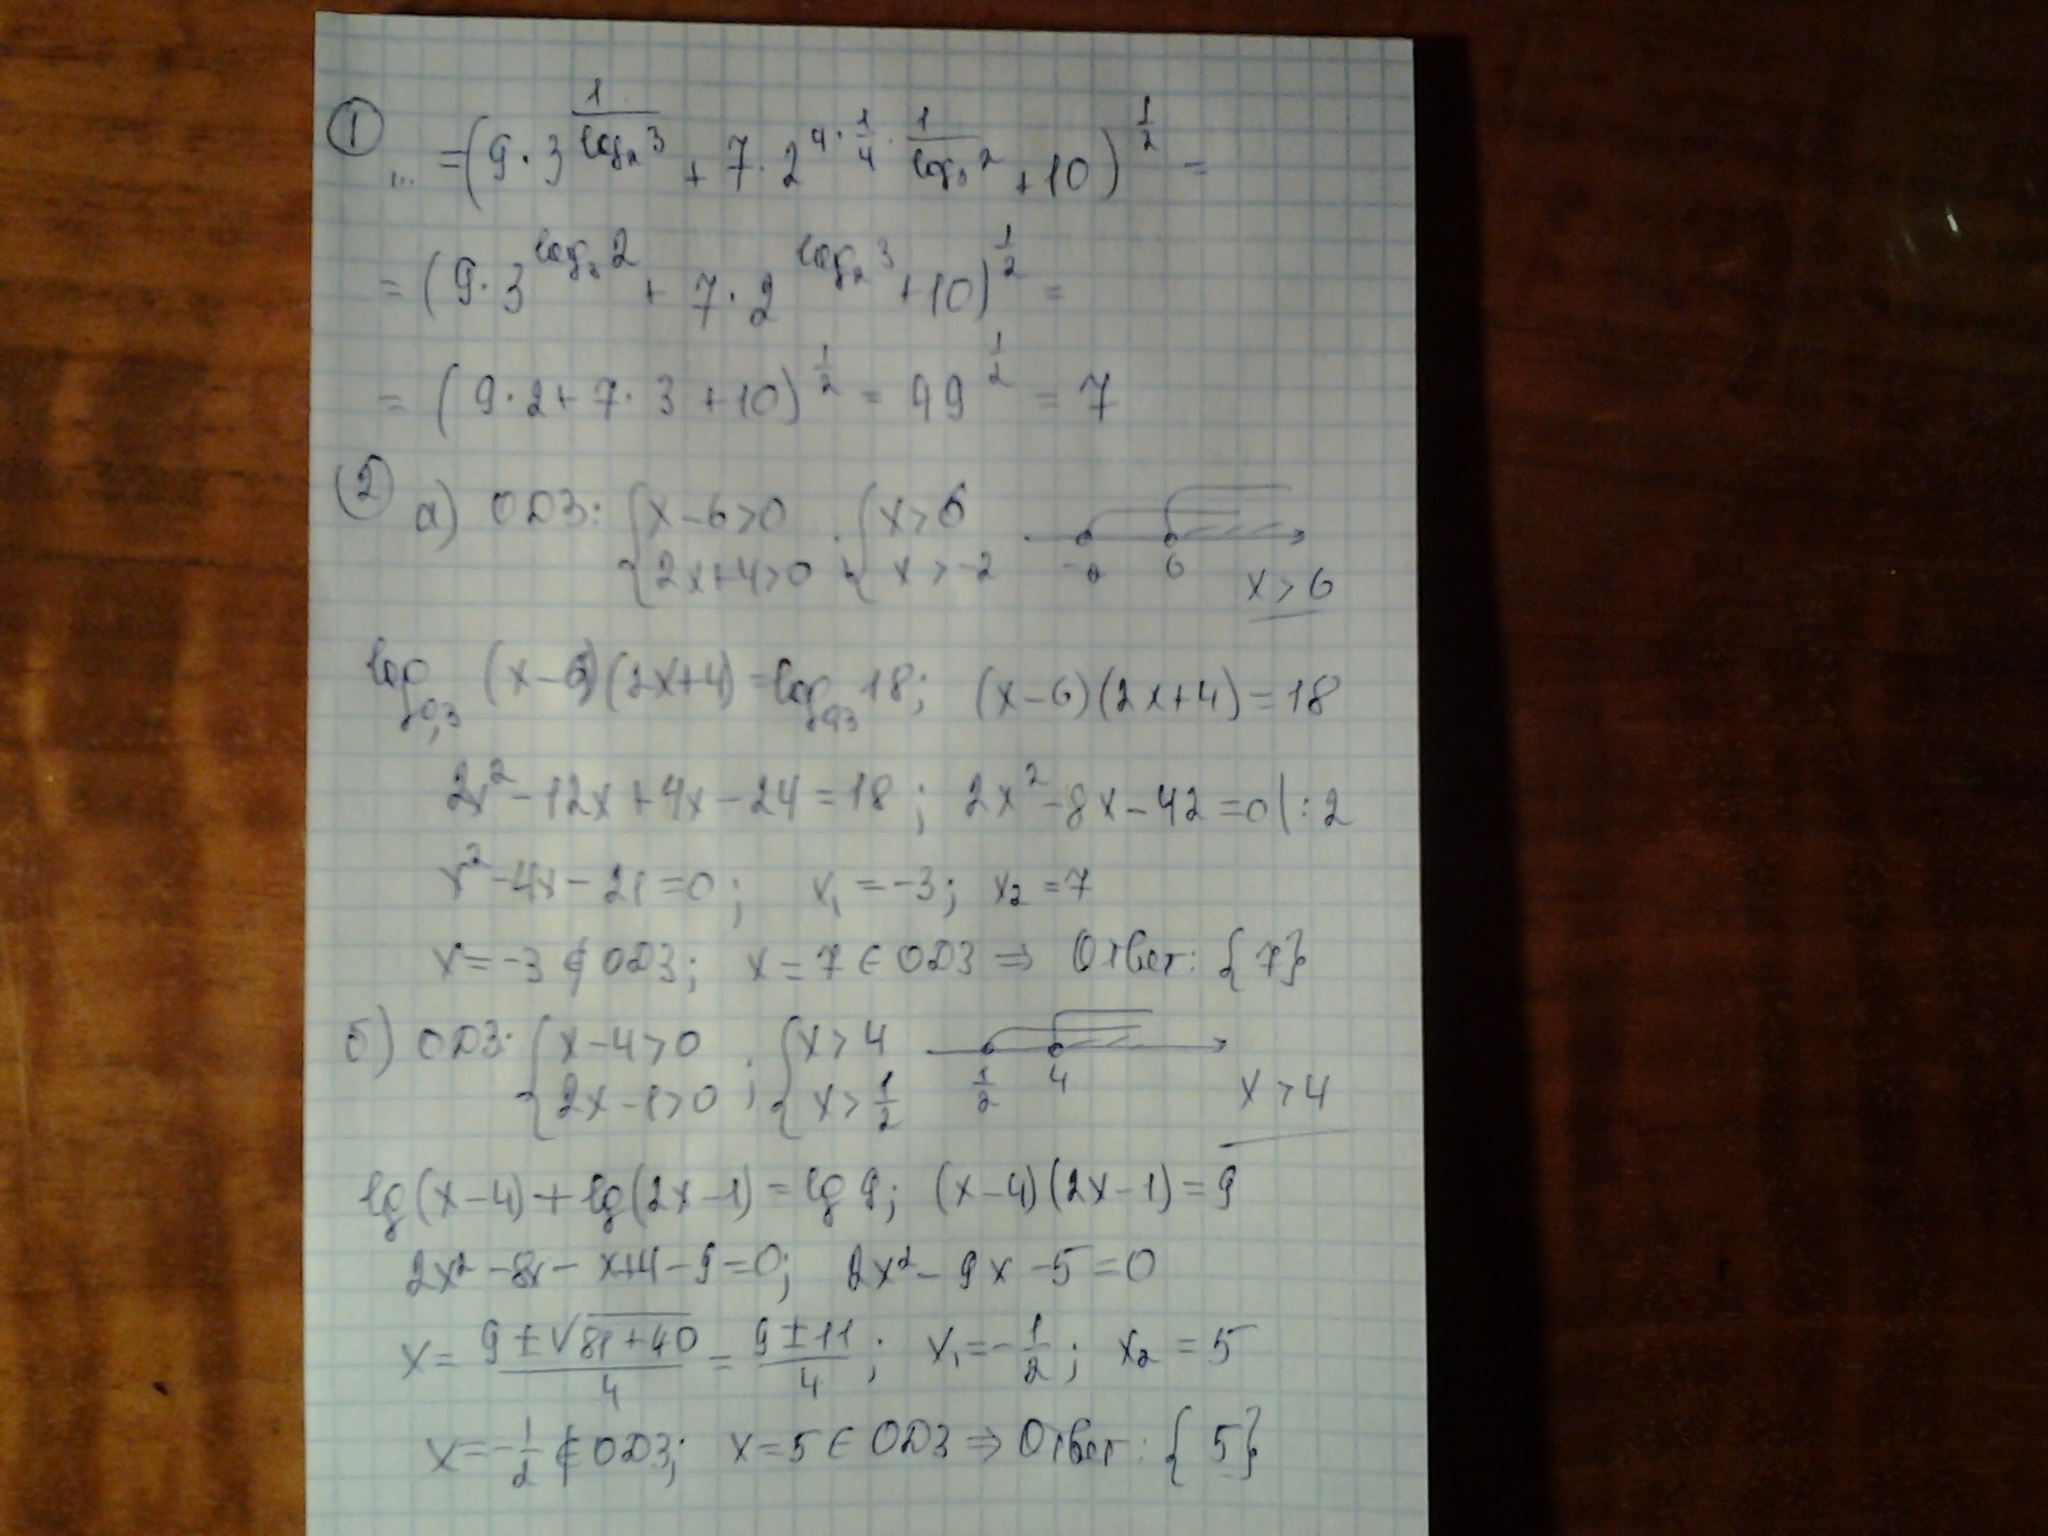 ① ... = (9·3^(1/log₂3) + 7·2^(4·1/4·1/log₃2) + 10)^(1/2) =
= (9·3^(log₃2) + 7·2^(log₂3) + 10)^(1/2) =
= (9·2 + 7·3 + 10)^(1/2) = 49^(1/2) = 7
② а) ОДЗ: { x-6>0 ; { x>6
{ 2x+4>0 { x>-2
-2 6 x>6
log₀,₃ (x-6)(2x+4) = log₀,₃ 18; (x-6)(2x+4)=18
2x²-12x+4x-24=18; 2x²-8x-42=0|:2
x²-4x-21=0; x₁=-3; x₂=7
x=-3 ∉ ОДЗ; x=7 ∈ ОДЗ ⇒ Ответ: {7}
б) ОДЗ: { x-4>0 ; { x>4
{ 2x-1>0 { x>1/2
1/2 4 x>4
lg(x-4)+lg(2x-1)=lg 9; (x-4)(2x-1)=9
2x²-8x-x+4-9=0; 2x²-9x-5=0
x = (9±√(81+40))/4 = (9±11)/4; x₁=-1/2; x₂=5
x=-1/2 ∉ ОДЗ; x=5 ∈ ОДЗ ⇒ Ответ: {5}